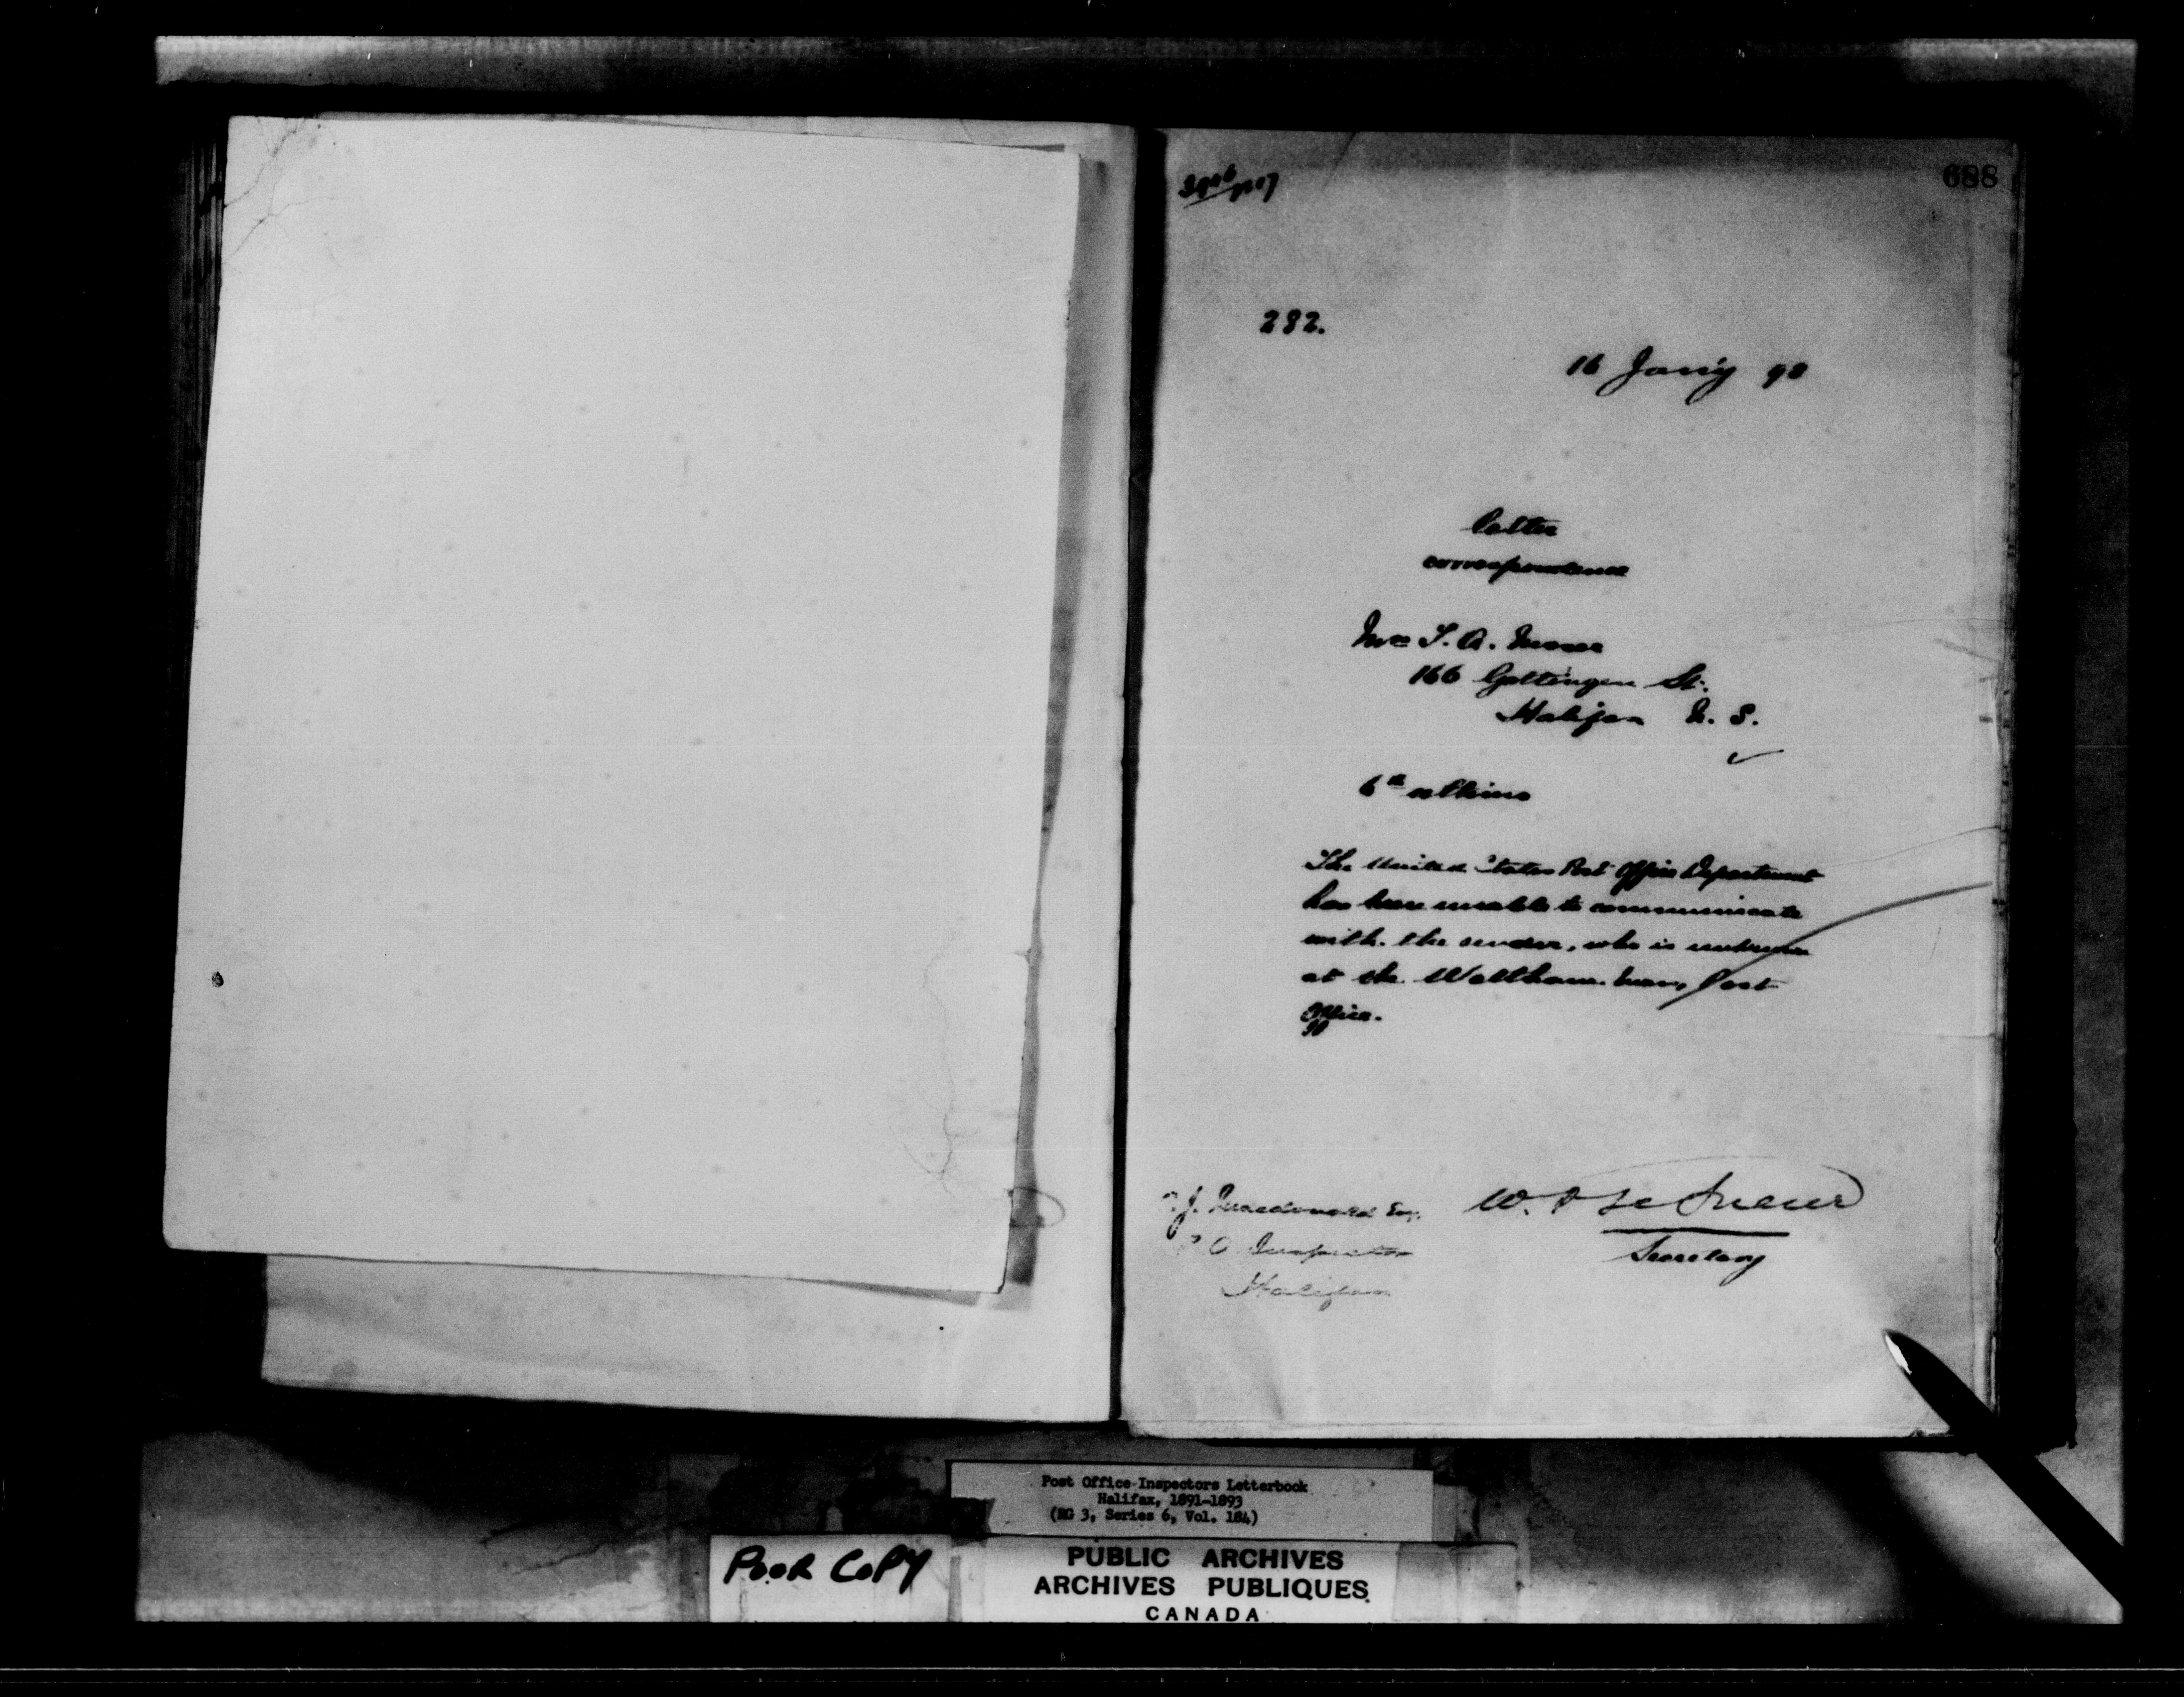 688
282.
16 Jany 93
letter
correspondence
Mrs T. A.
166 Gottingen St.
Halifax N. S.
6th ultimo
The United States Post Office Department
has been unable to communicate
with the sender, who is unknown
at the Waltham Mass, Post
Office.
W. D Le Sueur
Secretary
J. Macdonald Esq.
P O Inspector
Halifax
Post Office Inspectors Letterbook
Halifax, 1891-1893
(RG 3, Series 6, Vol. 184)
POOR COPY
PUBLIC ARCHIVES
ARCHIVES PUBLIQUES
CANADA